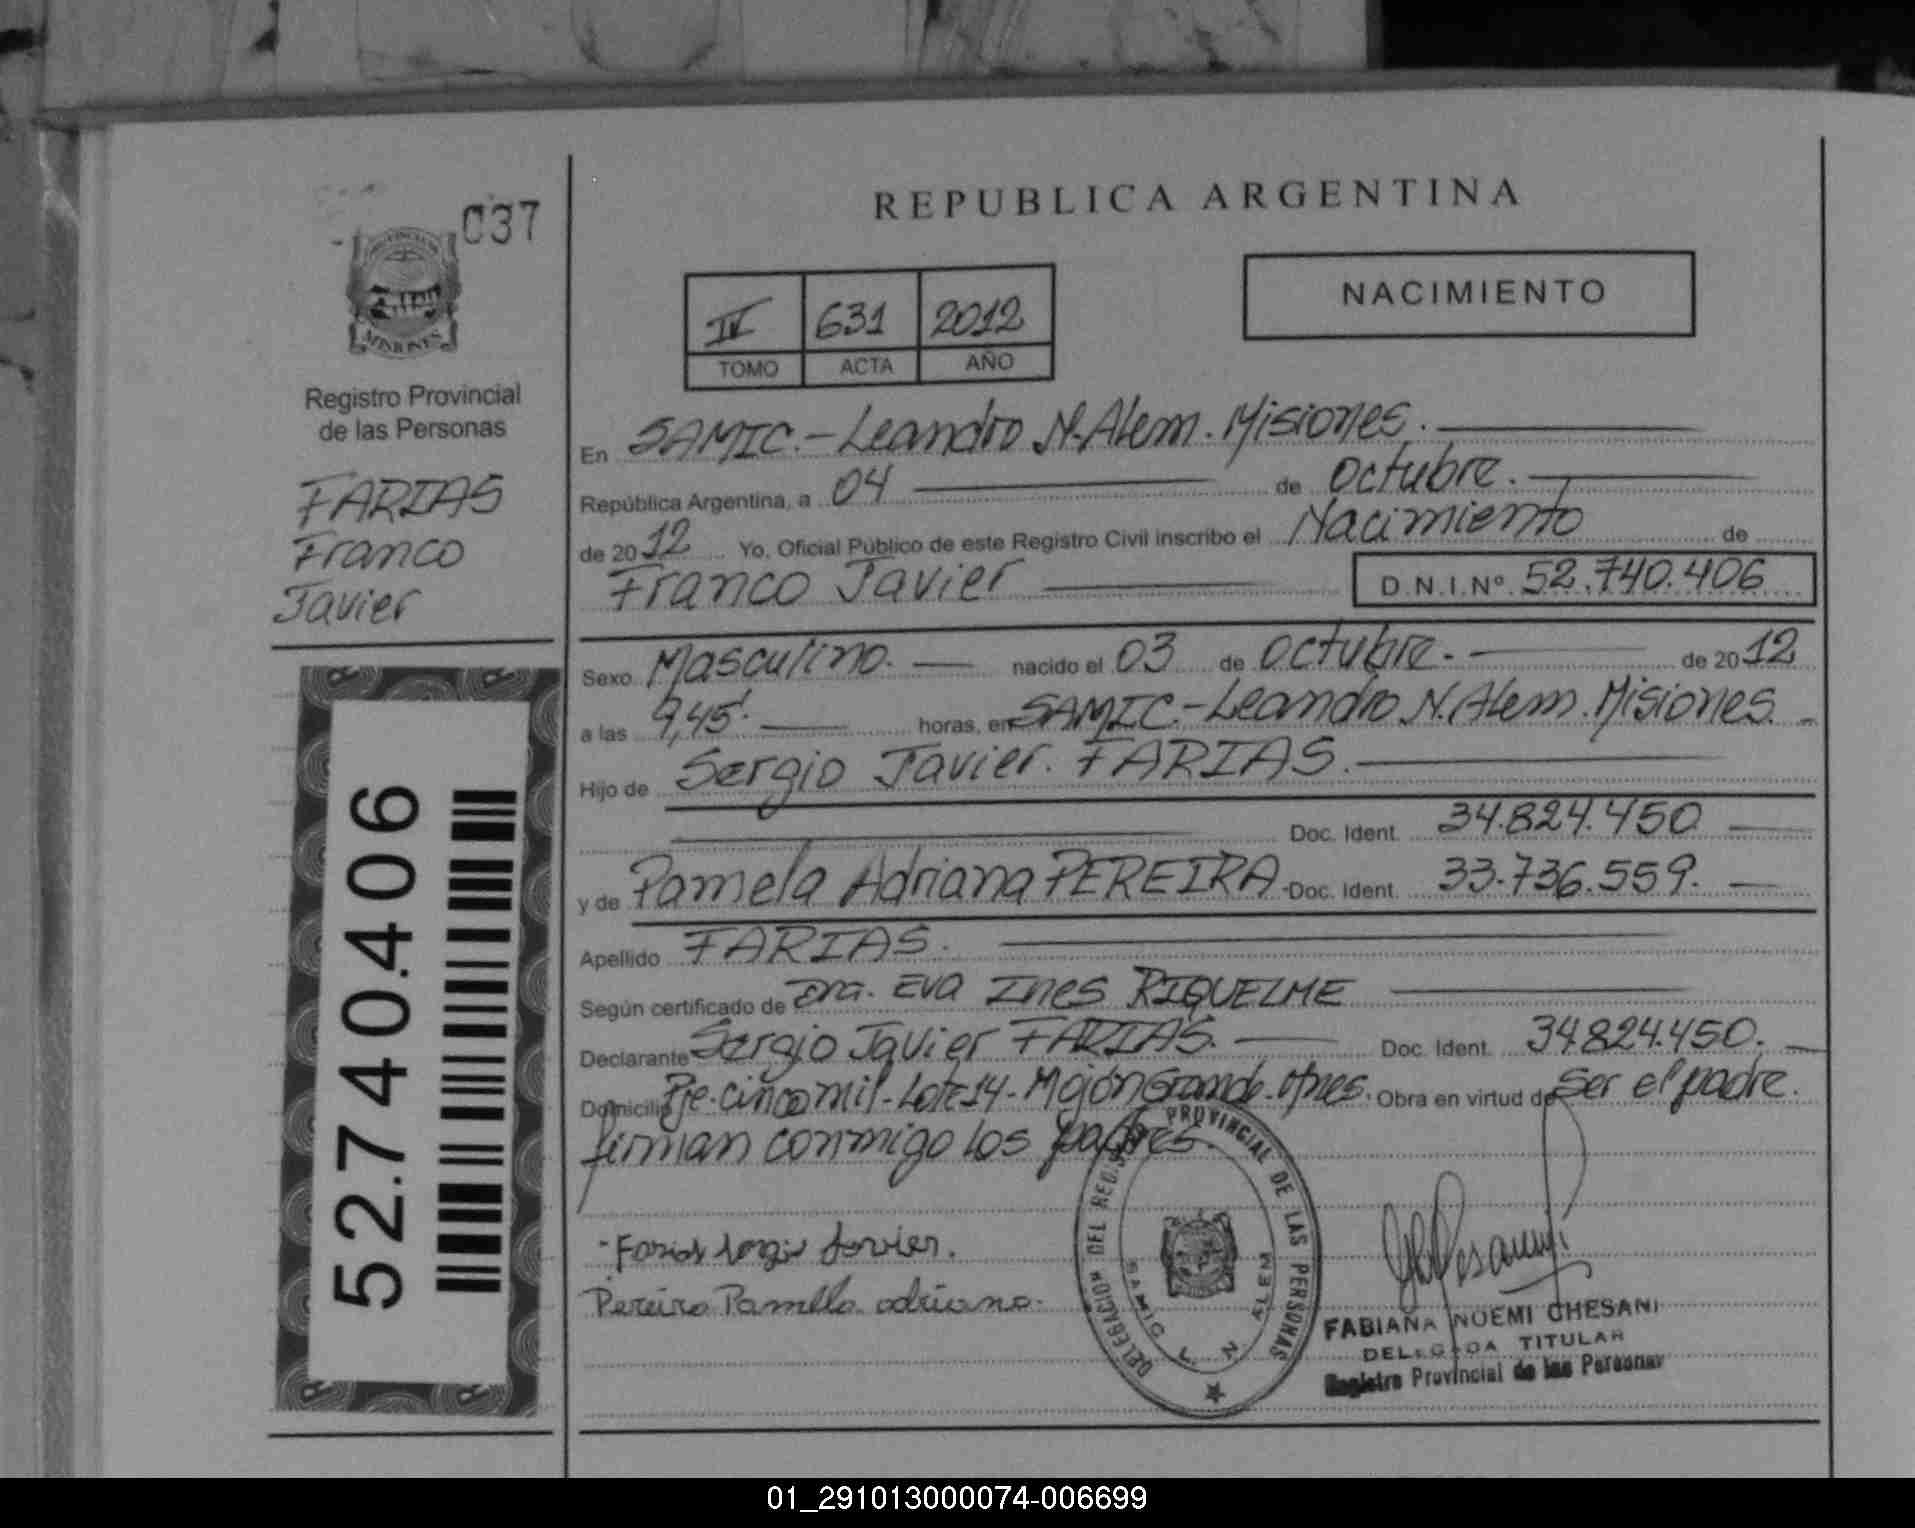 037
PROVINCIA DE
MISIONES
Registro Provincial
de las Personas
FARIAS
Franco
Javier
52.740.406
REPUBLICA ARGENTINA
NACIMIENTO
IV 631 2012
TOMO ACTA AÑO
En SAMIC.- Leandro N. Alem. Misiones.
República Argentina, a 04 de octubre.
de 2012 Yo, Oficial Público de este Registro Civil inscribo el Nacimiento de
Franco Javier D.N.I.Nº. 52.740.406
Sexo Masculino. nacido el 03 de octubre. de 2012
a las 9,45'. horas, en SAMIC.- Leandro N. Alem. Misiones.
Hijo de Sergio Javier. FARIAS.
Doc. Ident. 34.824.450
y de Pamela Adriana PEREIRA - Doc. Ident. 33.736.559.
Apellido FARIAS.
Según certificado de Dra. Eva Ines RIQUELME
Declarante Sergio Javier FARIAS. Doc. Ident. 34.824.450.
Domicilio Pje. cinco mil - Lote 14 - Mojón Grande. Mnes. Obra en virtud de ser el padre.
firman conmigo los padres.
DELEGACION DEL REG. PROVINCIAL DE LAS PERSONAS
SAMIC L. N. ALEM
Farias Sergio Javier.
Pereira Pamella adriana.
FABIANA NOEMI CHESANI
DELEGADA TITULAR
Registro Provincial de las Personas
01_291013000074-006699